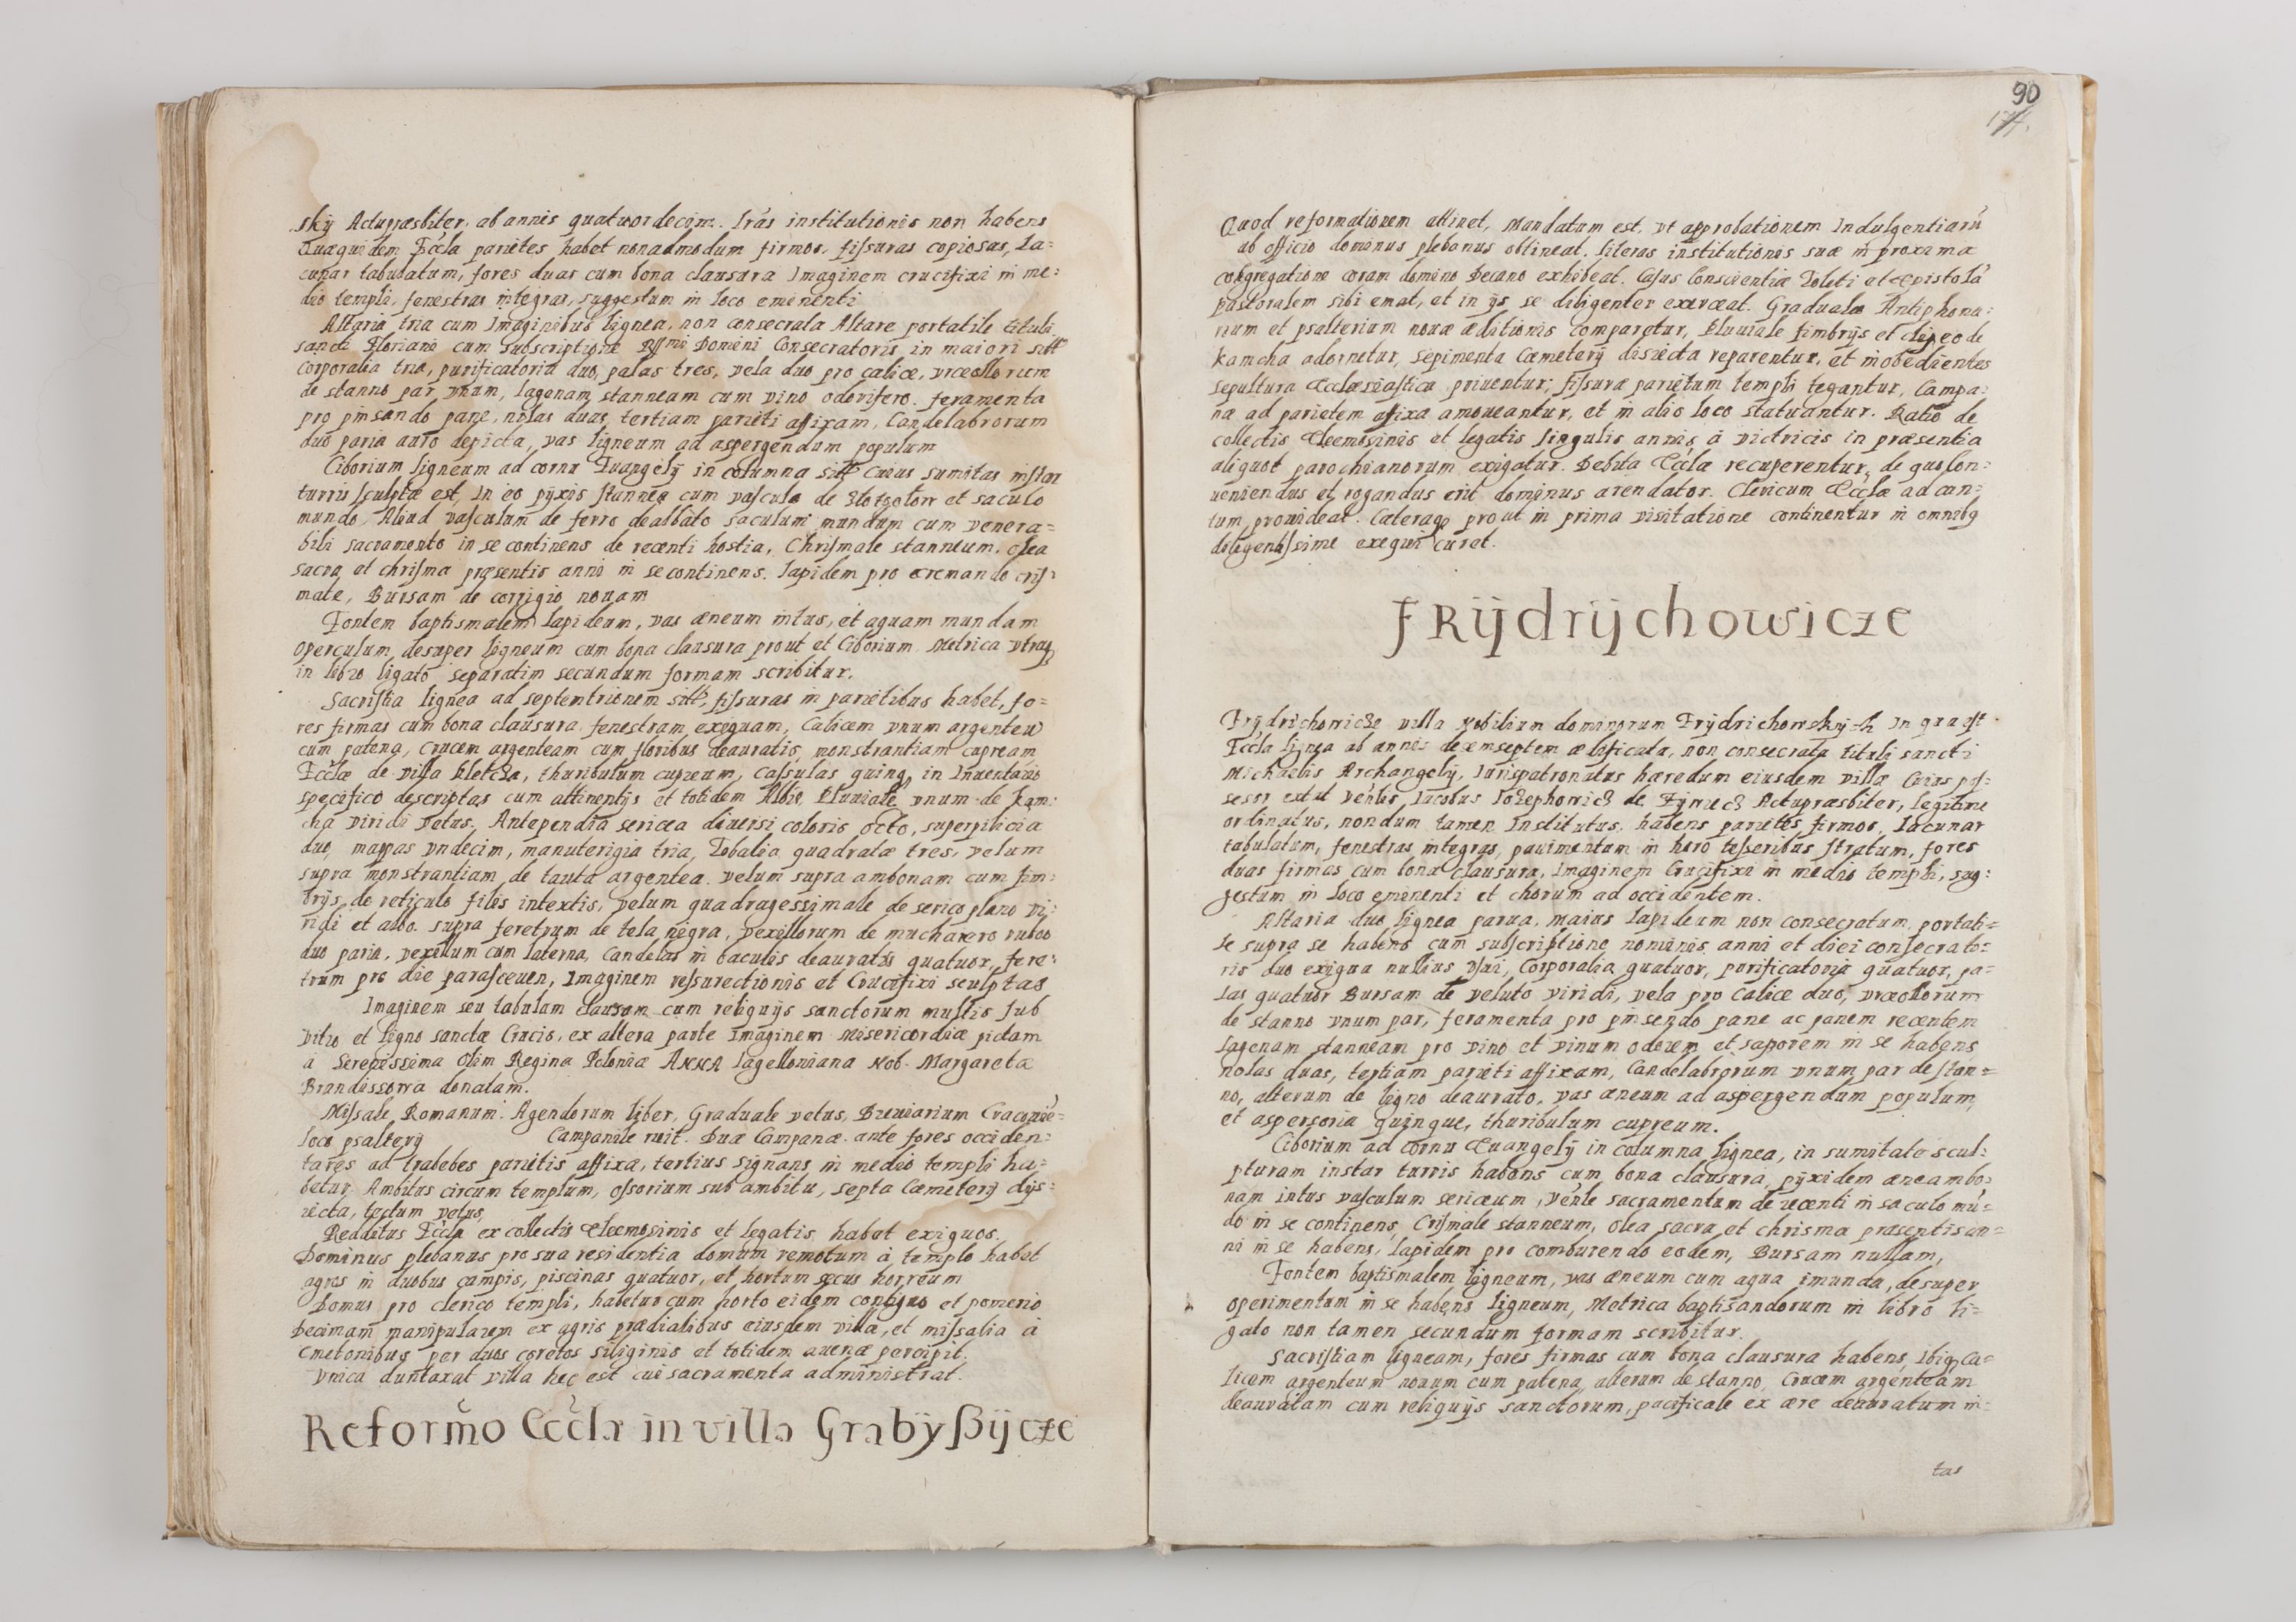 skij Actupræsbiter, ab annis quatuordecim. Lrãs institutionis non habens
Quæquidem Eccla parietes habet nonadmodum firmos, fissuras copiosas, La=
cunar tabulatum, fores duas cum bona clausura Imaginem crucifixi in me=
dio templi, fenestras integras, suggestum in loco eminenti
Altaria tria cum Imaginibus lignea, non consecrata Altare portatile tituli
sancti Floriani cum subscriptione Rssmi Domini Consecratoris in maiori
Corporalia tria, purificatoria duo, palas tres, vela duo pro calice, vrceollorum
de stanno par vnum, lagenam stanneam cum vino odorifero. feramenta
pro pinsendo pane, nolas duas, tertiam parieti affixam, Candelabrorum
duo paria auro depicta, vas ligneum ad aspergendum populum
Ciborium ligneum ad cornu Euangelij in columna Cuius sumitas instar
turris sculptæ est, In eo pÿxis stannea cum vasculo de et saculo
mundo, Aliud vasculum de ferro dealbato saculum mundum cum venera=
bili sacramento in se continens de recenti hostia, Chrismale stanneum, olea
sacra et chrisma præsentis anni in se continens. lapidem pro cremando cris=
mate, Bursam de corrigio nouam
Fontem baptismalem lapideum, vas æneum intus, et aquam mundam
operculum desuper ligneum cum bona clausura prout et Ciborium Metrica vtraq
in libro ligato separatim secundum formam scribitur.
Sacristia lignea ad septemtrionem fissuras in parietibus habet, fo=
res firmas cum bona clausura fenestram exiguam, Calicem vnum argenteũ
cum patena, Crucem argenteam cum floribus deauratis, monstrantiam cupream
Ecclæ de villa thuribulum cupreum, Cassulas quinq, in Inuentario
specifico descriptas cum attinentijs et totidem Albis Pluuiale vnum de kam=
cha viridi vetus. Antependia sericea diuersi coloris octo, superpilicia
duo, mappas vndecim, manuterigia tria, Tobalia quadratæ tres, velum
supra monstrantiam de tauta argentea. velum supra ambonam cum fim=
brijs de reticulo filis intextis, velum quadragessimale de serico plano vi=
ridi et albo. supra feretrum de tela nigra, vexillorum de rubro
duo paria, vexillum cum laterna, Candelas in baculis deauratis quatuor, fere=
trum pro die parasceuen, Imaginem ressurectionis et Crucifixi sculptas
Imaginem seu tabulam clausam cum reliquijs sanctorum multis sub
vitro et ligno sanctæ Crucis, ex altera parte Imaginem Misericordiæ pictam
à Serenissima olim Regina Poloniæ ANNA Iagelloniana Nob. Margareta
donatam.
Missale Romanum. Agendorum liber, Graduale vetus, Breuiarium
loco psalterij Campanile ruit. Duæ Campanæ ante fores occiden=
tares ad parietis affixæ, tertius signans in medio templi ha=
betur, Ambitus circum templum, ossorium sub ambitu, septa Cæmeterij dijs=
iecta, tectum vetus,
Redditus Eccla ex collectis Eleemosinis et legatis habet exiguos.
Dominus plebanus pro sua residentia domum remotum à templo habet
agros in duobus campis, piscinas quatuor, et hortum secus horreum
Domus pro clerico templi, habetur cum horto eidem contiguo et pomerio
Decimam manipularem ex agris prædialibus eiusdem villæ, et missalia à
Cmetonibus per duos coretos siliginis et totidem auenæ percipit.
Vnica duntaxat villa hec est cui sacramenta administrat.
Reformo Eccla in villa Grabÿßÿcze
90
Quod reformationem attinet, Mandatum est, vt approbationem Indulgentiarũ
ab officio dominus plebanus obtineat. literas institutionis suæ in proxima
congregatione coram domino Decano exhibeat. Casus Conscientiæ Toleti et Epistolã
pastoralem sibi emat, et in ijs se diligenter exerceat. Graduale Antiphona=
rium et psalterium nouæ æditionis comparetur, Pluuiale fimbrijs et clipeo de
kamcha adornetur, sepimenta Cæmeterij disiecta reparentur, et inobedientes
sepultura Ecclæsiastica priuentur, fissuræ parietum templi tegantur, Campa=
næ ad parietem affixæ amoueantur, et in alio loco statuantur. Ratio de
collectis Eleemosinis et legatis singulis annis à victricis in præsentia
aliquot parochianorum exigatur. Debita Ecclæ recuperentur, de quo con=
ueniendus et rogandus erit dominus arendator. Clericum Ecclæ ad can=
tum prouideat. Cæteraq prout in prima visitatione continentur in omnibq
diligentissime exequi curet.
FRÿdrÿchowicze
villa Nobilium dominorum in qua est
Eccla lignea ab annis decemseptem ædificata, non consecrata tituli sancti
Michaelis Archangeli, Iurispatronatus hæredum eiusdem villæ Cuius pos=
sessor extat Iacobus de Actupræsbiter, legitime
ordinatus, nondum tamen Institutus. habens parietes firmos, Lacunar
tabulatum, fenestras integras, pauimentum in stratum, fores
duas firmas cum bona clausura, Imaginem Crucifixi in medio templi, sug=
gestum in loco eminenti et chorum ad occidentem.
Altaria duo lignea parua, maius lapideum non consecratum, portati=
le supra se habens cum subscriptione nominis anni et diei consecrato=
ris duo exigua nullius vsui, Corporalia quatuor, purificatoria quatuor, pa=
las quatuor Bursam de veluto viridi, vela pro Calice duo, vrceollorum
de stanno vnum par, feramenta pro pinsendo pane ac panem recentem
lagenam stanneam pro vino et vinum odorem et saporem in se habens
nolas duas, tertiam parieti affixam, Candelabrorum vnum par de stan=
no, alterum de ligno deaurato, vas æneum ad aspergendum populum,
et aspersoria quinque, thuribulum cupreum.
Ciborium ad cornu Euangelij in columna lignea, in sumitate scul=
pturam instar turris habens cum bona clausura, pÿxidem æneam bo=
nam intus vasculum sericeum, sacramentum de recenti in saculo mũ=
do in se continens, Crismale stanneum, olea sacra et chrisma præsentis an=
ni in se habens, lapidem pro comburendo eodem, Bursam nullam,
Fontem baptismalem ligneum, vas æneum cum aqua imunda, desuper
operimentum in se habens ligneum, Metrica baptisandorum in libro li=
gato non tamen secundum formam scribitur.
Sacristiam ligneam, fores firmas cum bona clausura habens, Ibiq Ca=
licem argenteum nouum cum patena, alterum de stanno, Crucem argenteam
deauratam cum reliquijs sanctorum, pacificale ex ære deauratum in=
tas